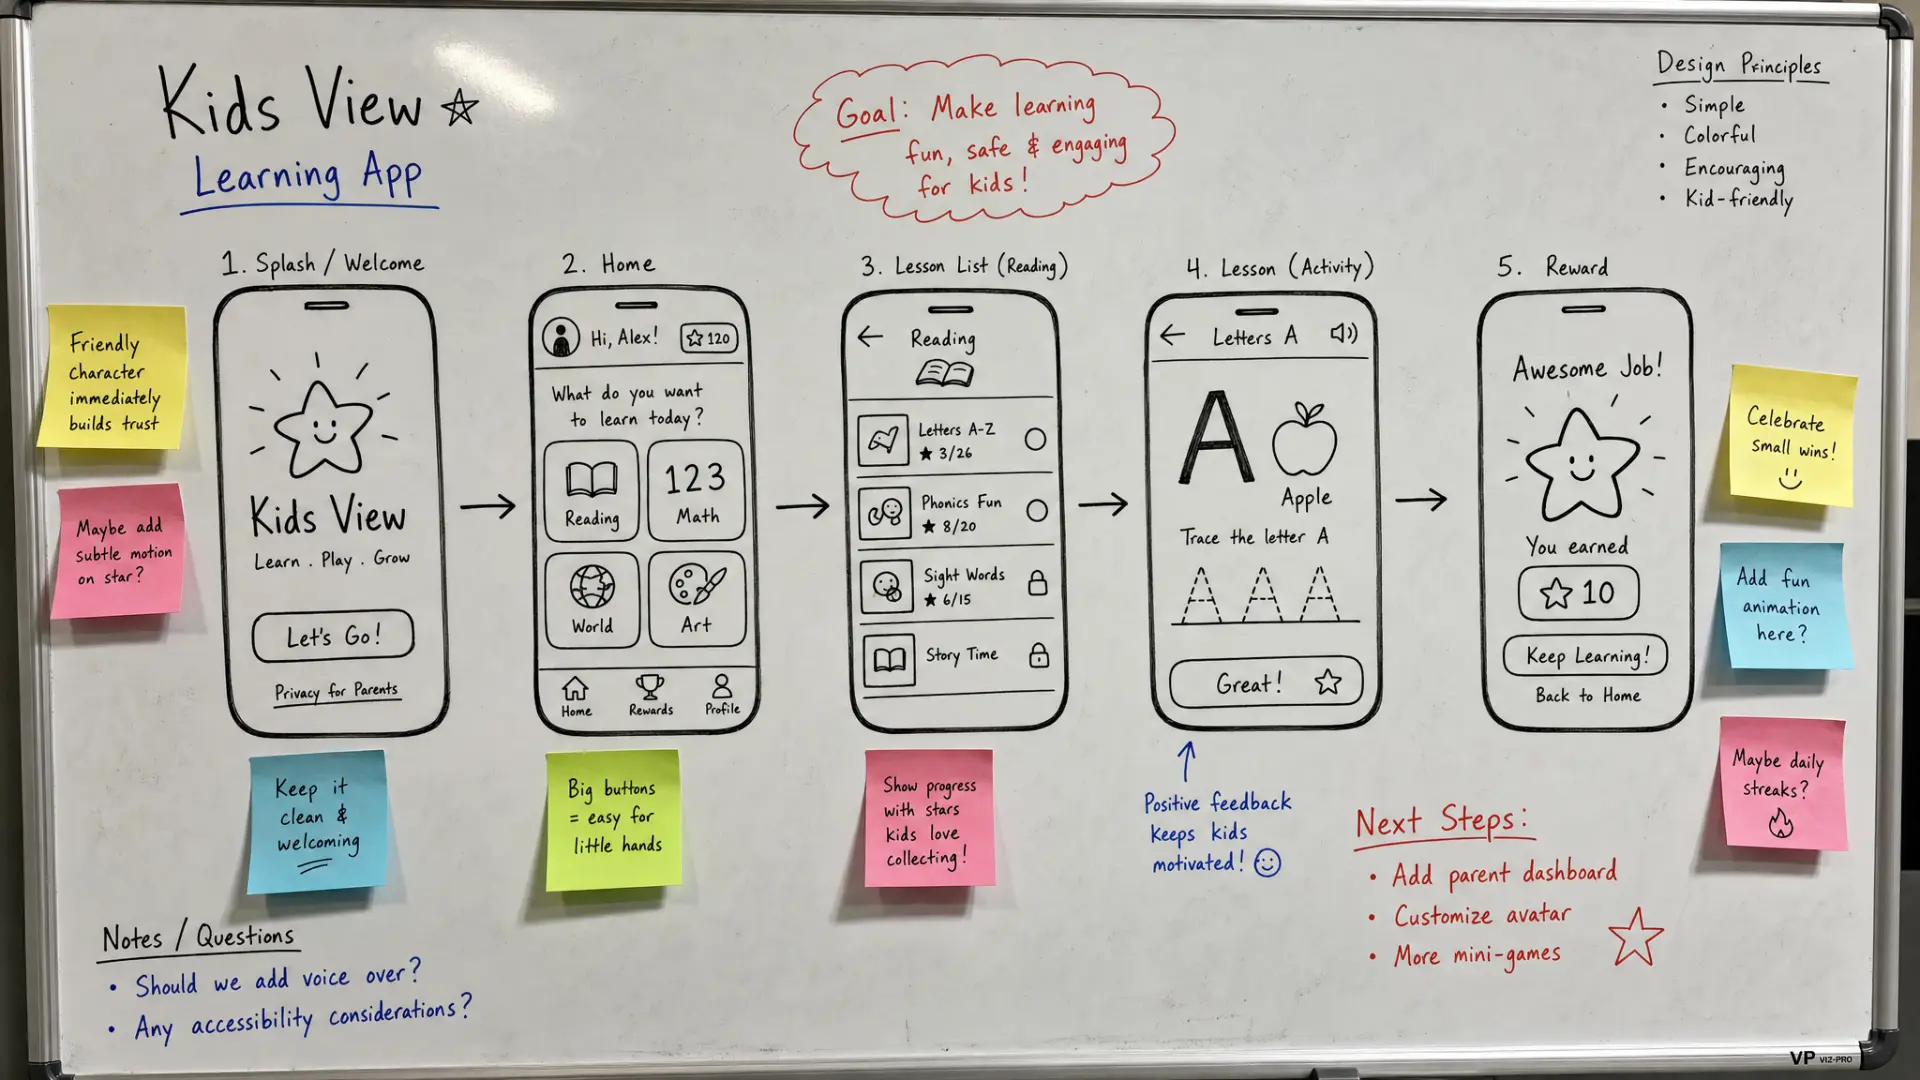 Kids View
Learning App
Goal: Make learning
fun, safe & engaging
for kids!
Design Principles
• Simple
• Colorful
• Encouraging
• Kid-friendly
1. Splash / Welcome
Kids View
Learn . Play . Grow
Let's Go!
Privacy for Parents
2. Home
Hi, Alex!
120
What do you want
to learn today?
Reading
123
Math
World
Art
Home
Rewards
Profile
3. Lesson List (Reading)
Reading
Letters A-Z
★ 3/26
Phonics Fun
★ 8/20
Sight Words
★ 6/15
Story Time
4. Lesson (Activity)
Letters A
A
Apple
Trace the letter A
A A A
Great!
5. Reward
Awesome Job!
You earned
10
Keep Learning!
Back to Home
Friendly
character
immediately
builds trust
Maybe add
subtle motion
on star?
Keep it
clean &
welcoming
Big buttons
= easy for
little hands
Show progress
with stars
kids love
collecting!
Positive feedback
keeps kids
motivated!
Celebrate
small wins!
Add fun
animation
here?
Maybe daily
streaks?
Next Steps:
• Add parent dashboard
• Customize avatar
• More mini-games
Notes / Questions
• Should we add voice over?
• Any accessibility considerations?
VP VIZ-PRO